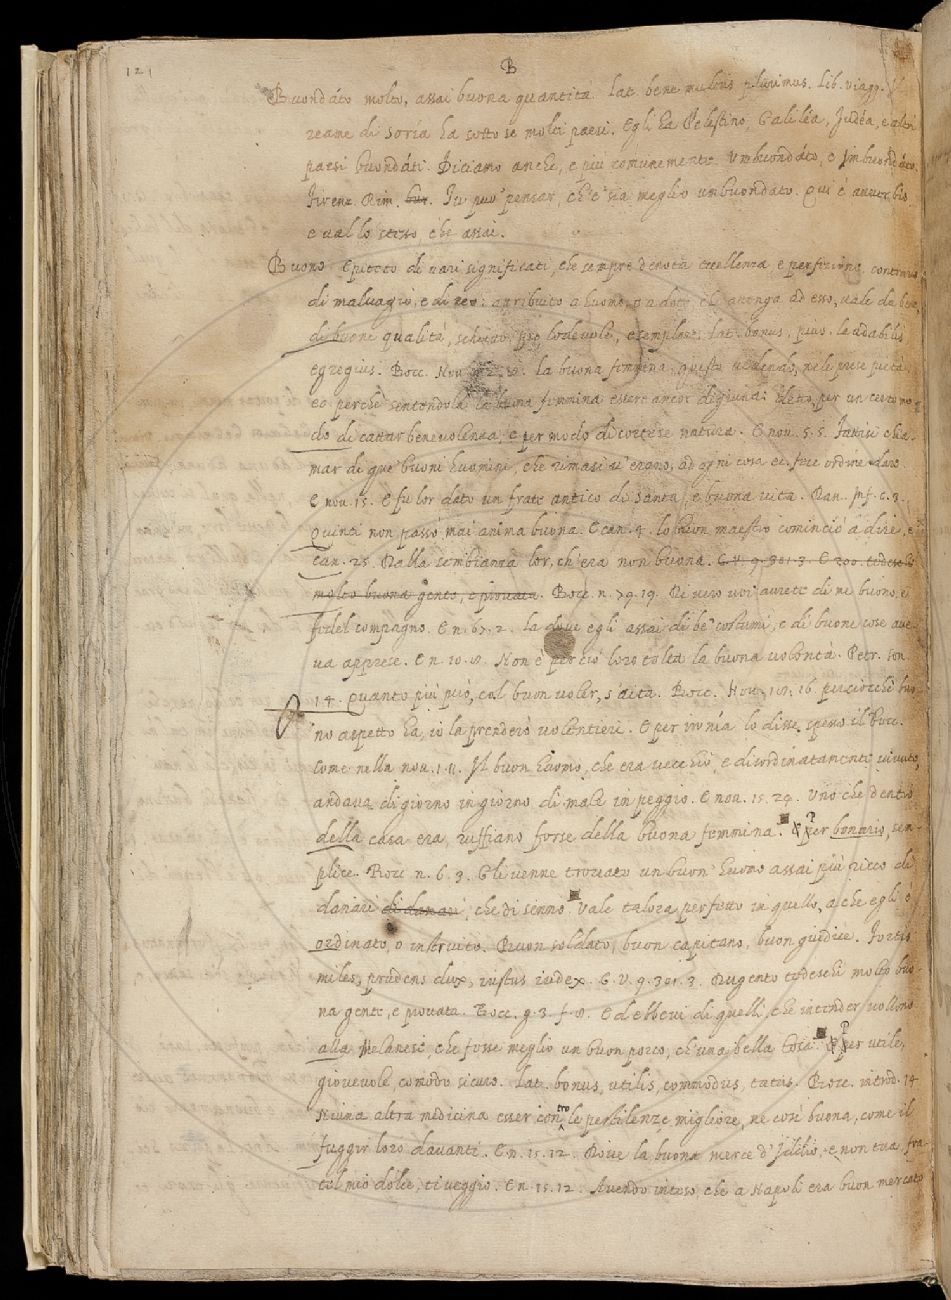 121
B
Buondáto molto, assai buona quantità. Lat. bene multus plurimus. Lib. viagg. Il
reame di Soría ha sotto se molti paesi. Egli ha Pelestino, Galiléa, Judéa, e altri
paesi buondáti. Diciamo anche, e più comunemente Umbuondáto, e Imbuondáto.
Firenz. Rim. bur. Tu puo' pensar, ch'e' sia meglio umbuondato. Qui é avverbio
e val lo stesso, che assai.
Buono Epiteto di vari significati, che sempre denota eccellenza e perfezione, contrario
di malvagio, e di reo: attributo a huomo, o a dote che attenga ad esso, vale da bene,
di buone qualità, lodevole, esemplare. Lat. bonus, pius, laudabilis
egregius. Bocc. Nov. La buona femmina questo vedendo, nele prese pietà,
eo perché sentendola la buona femmina essere ancor digiuna: detto per un certo mo-
do di cattar benevolenza, e per modo di cortese natura. E nov. 5.5. Fattisi chia-
mar di que' buoni huomini, che rimasi v'erano, ad ogni cosa
E nov. 15. E fu lor dato un frate antico di santa, e buona vita. Dan. Inf. c. 3.
Quinci non passò mai anima buona. E can. 4. lo buon maestro cominciò a dire, e
can. 25. Dalla sembianza lor, ch'era non buona. E V. 9. 301. 3. E 200. tedeschi
molto buona gente, e provata. Bocc. n. 79. 19. Di vero voi avrete di me buono, e
fedel compagno. E n. 67. 2. La dove egli assai di be' costumi, e di buone cose ave-
va apprese. E n. 10. 8. Non è per ciò loro tolta la buona volontà. Petr. son.
14. Quanto più può, col buon voler, s'aita. Bocc. Nov. 101. 16. perciocché buo-
no aspetto ha, io la prenderò volentieri. E per ironía lo disse spesso il Bocc.
come nella nov. 1. 11. Il buon huomo, che era vecchio, e disordinatamente vivuto,
andava di giorno in giorno di male in peggio. E nov. 15. 29. Uno che dentro
della casa era, ruffiano forse della buona femmina. & Per bonario, sem-
plice. Bocc. n. 6. 3. Gli venne trovato un buon huomo assai più ricco di
danari di danari, che di senno. Vale talora perfetto in quello, a che egli è
ordinato, o instruito. Buon soldato, buon capitano, buon giudice. Fortis
miles, prudens dux, iustus iudex. G. V. 9. 301. 3. Dugento tedeschi molto buo-
na gente, e provata. Bocc. g. 3. f. 8. Ed ebbevi di quelli, che intender vollono
alla Melanese, che fosse meglio un buon porco, ch'una bella tosa. & Per utile,
giovevole, comodo sicuro. Lat. bonus, utilis, commodus, tutus. Bocc. introd. 14.
Niuna altra medicina esser contro le pestilenze migliore, ne cosí buona, come il
fuggir loro davanti. E n. 15. 12. Dove la buona merce d'Iddio, e non tua, fra-
tel mio dolce, ti veggio. E n. 15. 12. Avendo inteso, che a Napoli era buon mercato